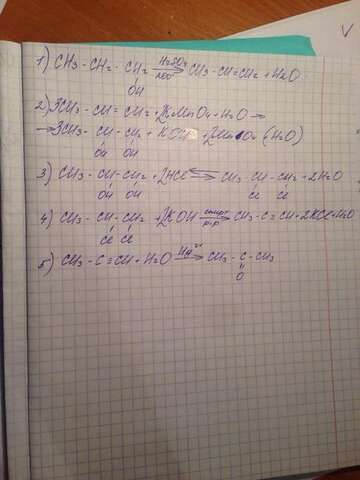 V
1) CH3-CH2-CH2 H2SO4 → CH3-CH=CH2+H2O
OH
2) 3CH3-CH=CH2+2KMnO4+H2O →
→3CH3-CH-CH2+KOH+2MnO2 (H2O)
OH OH
3) CH3-CH-CH2+2HCl ⇄ CH3 CH-CH2+2H2O
OH OH Cl Cl
4) CH3-CH-CH2+2KOH спирт р-р → CH3-C≡CH+2KCl+H2O
Cl Cl
5) CH3-C≡CH+H2O Hg2+ → CH3-C-CH3
O